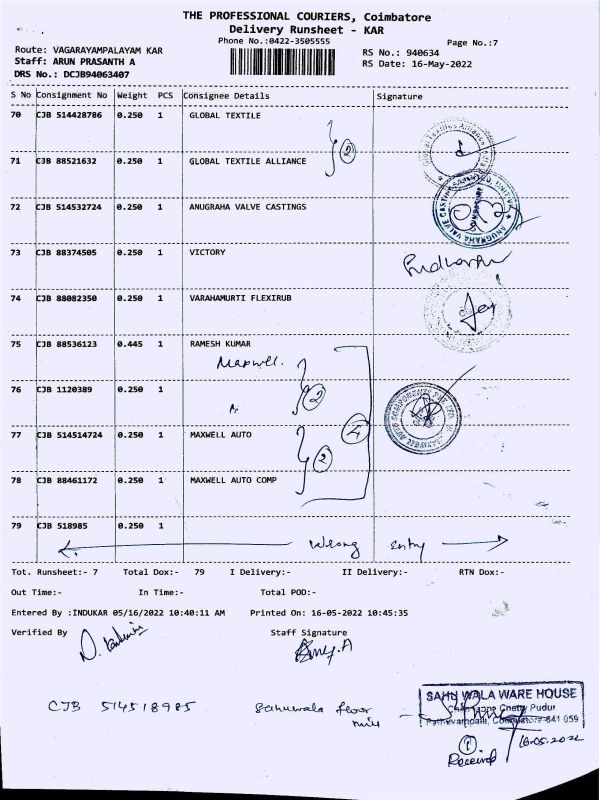 THE PROFESSIONAL COURIERS, Coimbatore
Delivery Runsheet - KAR
Phone No.:0422-3505555
Page No.:7
Route: VAGARAYAMPALAYAM KAR
RS No.: 940634
Staff: ARUN PRASANTH A
RS Date: 16-May-2022
DRS No.: DCJB94063407
S No Consignment No Weight PCS Consignee Details Signature
70 CJB 514428786 0.250 1 GLOBAL TEXTILE
2
71 CJB 88521632 0.250 1 GLOBAL TEXTILE ALLIANCE
72 CJB 514532724 0.250 1 ANUGRAHA VALVE CASTINGS
ANUGRAHA VALVE CASTINGS
COIMBATORE
73 CJB 88374505 0.250 1 VICTORY
74 CJB 88082350 0.250 1 VARAHAMURTI FLEXIRUB
75 CJB 88536123 0.445 1 RAMESH KUMAR
Maxwell.
2
76 CJB 1120389 0.250 1
4
MAXWELL AUTO COMPONENTS PVT. LTD.
77 CJB 514514724 0.250 1 MAXWELL AUTO
2
78 CJB 88461172 0.250 1 MAXWELL AUTO COMP
79 CJB 518985 0.250 1
Wrong entry
Tot. Runsheet:- 7 Total Dox:- 79 I Delivery:- II Delivery:- RTN Dox:-
Out Time:- In Time:- Total POD:-
Entered By :INDUKAR 05/16/2022 10:40:11 AM Printed On: 16-05-2022 10:45:35
Verified By Staff Signature
CJB 514518985 Sahuwala flour mill
SAHU WALA WARE HOUSE
Chetty Pudur
Coimbatore-641 059
16.05.2022
1
Received